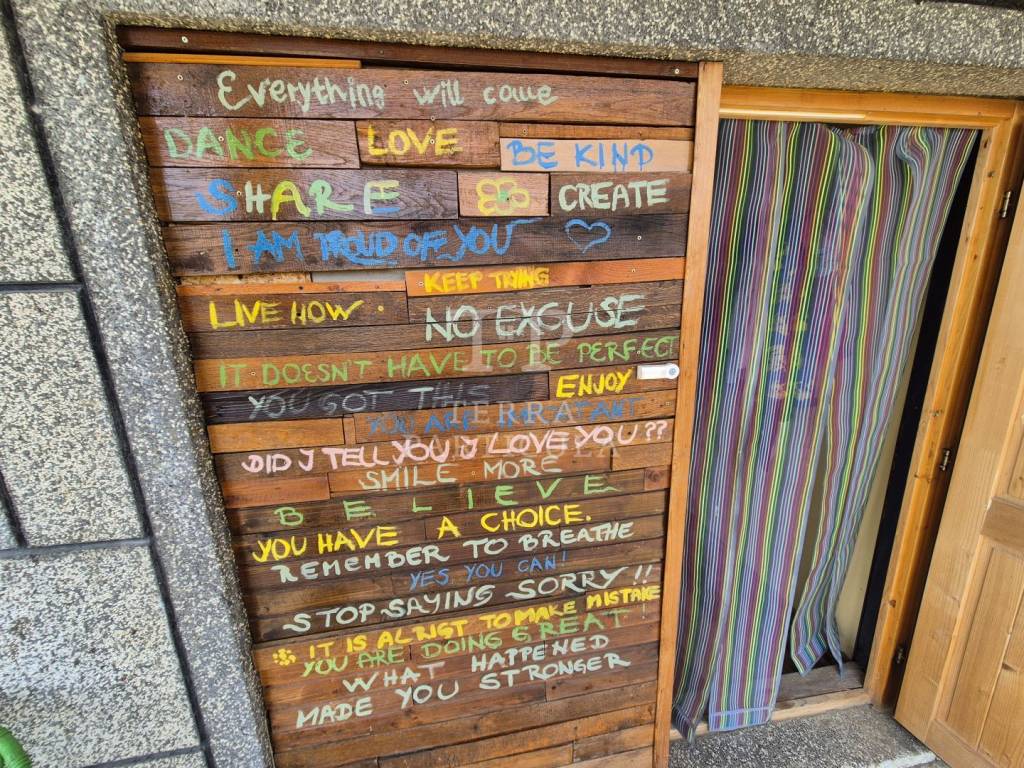 Everything will come
DANCE LOVE BE KIND
SHARE CREATE
I AM PROUD OF YOU
KEEP TRYING
LIVE HOW .
NO EXCUSE
IT DOESNT HAVE TO BE PERFECT
YOU GOT THIS ENJOY
YOU ARE IMPORTANT
DID I TELL YOU I LOVE YOU ??
SMILE MORE
BELIEVE
YOU HAVE A CHOICE.
REMEMBER TO BREATHE
YES YOU CAN!
STOP SAYING SORRY!!
IT IS ALRIGT TO MAKE MISTAKE
YOU ARE DOING GREAT!
WHAT HAPPENED
MADE YOU STRONGER